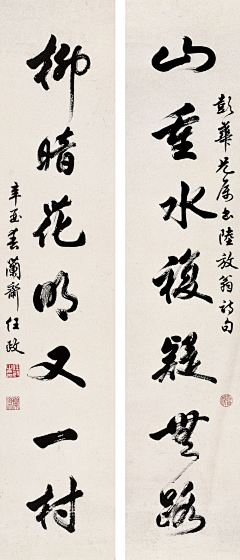 山重水複疑無路
彭華兄属书陸放翁诗句
柳暗花明又一村
辛酉春蘭齋任政